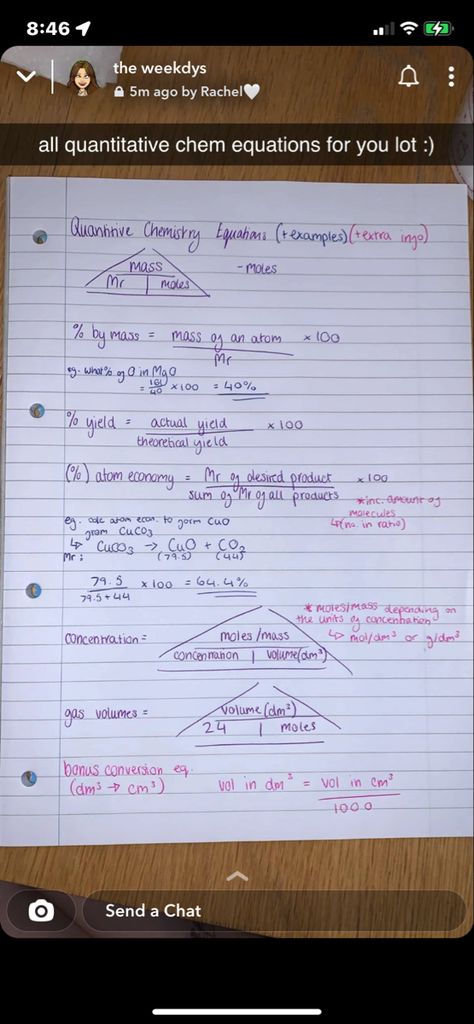 8:46
the weekdys
5m ago by Rachel🤍
all quantitative chem equations for you lot :)
Quantitive Chemistry Equations (+examples) (+extra info)
mass
- moles
Mr | moles
% by mass = mass of an atom x 100
Mr
eg. what % of O in MgO
= 16/40 x 100 = 40%
% yield = actual yield x 100
theoretical yield
(%) atom economy = Mr of desired product x 100
sum of Mr of all products
*inc. amount of
molecules
↳(no. in ratio)
eg. calc atom econ. to form CuO
from CuCO3
↳ CuCO3 → CuO + CO2
Mr: (79.5) (44)
79.5 x 100 = 64.4%
79.5 + 44
* moles/mass depending on
the units of concentration
↳ mol/dm³ or g/dm³
concentration = moles/mass
concentration | volume(dm³)
gas volumes = volume (dm³)
24 | moles
bonus conversion eq.
(dm³ → cm³) vol in dm³ = vol in cm³
1000
Send a Chat